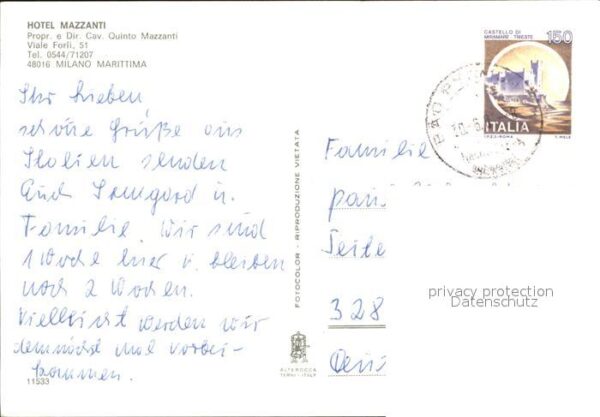 HOTEL MAZZANTI
Propr. e Dir. Cav. Quinto Mazzanti
Viale Forlì, 51
Tel. 0544/71207
48016 MILANO MARITTIMA
Ihr Lieben
schöne Grüße aus
Italien senden
Euch Irmgard u.
Familie. Wir sind
1 Woche hier u. bleiben
noch 2 Wochen.
Vielleicht werden wir
demnächst mal vorbei-
kommen.
11533
FOTOCOLOR - RIPRODUZIONE VIETATA
ALTEROCCA
TERNI - ITALY
CASTELLO DI
MIRAMARE TRIESTE
150
ITALIA
Familie
328
privacy protection
Datenschutz